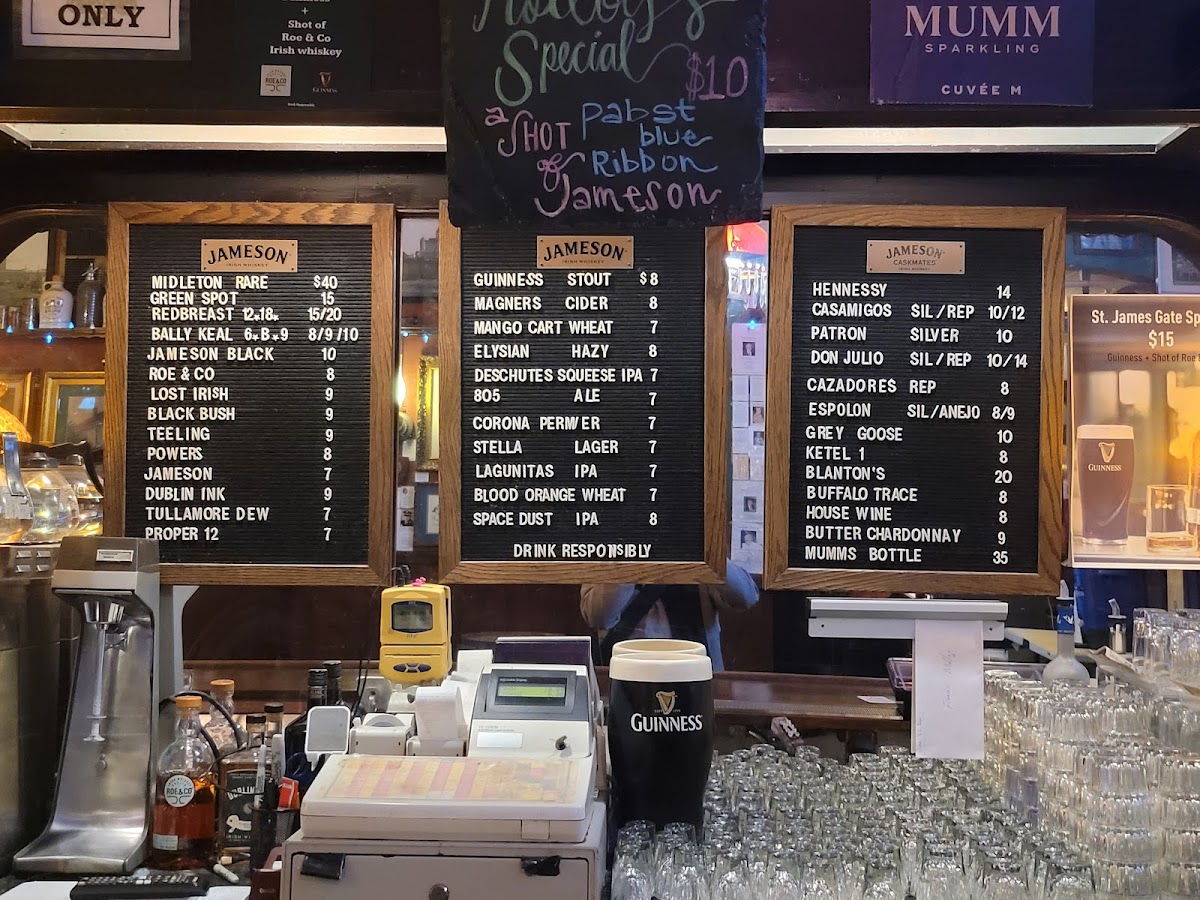 ONLY
+
Shot of
Roe & Co
Irish whiskey
ROE&CO
GUINNESS
Special
$10
a SHOT of Jameson
Pabst blue Ribbon
MUMM
SPARKLING
CUVÉE M
JAMESON
IRISH WHISKEY
MIDLETON RARE $40
GREEN SPOT 15
REDBREAST 12 18 15/20
BALLY KEAL 6 B 9 8/9/10
JAMESON BLACK 10
ROE & CO 8
LOST IRISH 9
BLACK BUSH 9
TEELING 9
POWERS 8
JAMESON 7
DUBLIN INK 9
TULLAMORE DEW 7
PROPER 12 7
JAMESON
IRISH WHISKEY
GUINNESS STOUT $8
MAGNERS CIDER 8
MANGO CART WHEAT 7
ELYSIAN HAZY 8
DESCHUTES SQUEESE IPA 7
805 ALE 7
CORONA PERM/ER 7
STELLA LAGER 7
LAGUNITAS IPA 7
BLOOD ORANGE WHEAT 7
SPACE DUST IPA 8
DRINK RESPONSIBLY
JAMESON
CASKMATES
IRISH WHISKEY
HENNESSY 14
CASAMIGOS SIL/REP 10/12
PATRON SILVER 10
DON JULIO SIL/REP 10/14
CAZADORES REP 8
ESPOLON SIL/ANEJO 8/9
GREY GOOSE 10
KETEL 1 8
BLANTON'S 20
BUFFALO TRACE 8
HOUSE WINE 8
BUTTER CHARDONNAY 9
MUMMS BOTTLE 35
St. James Gate Sp
$15
Guinness + Shot of Roe
GUINNESS
GUINNESS
ROE&CO